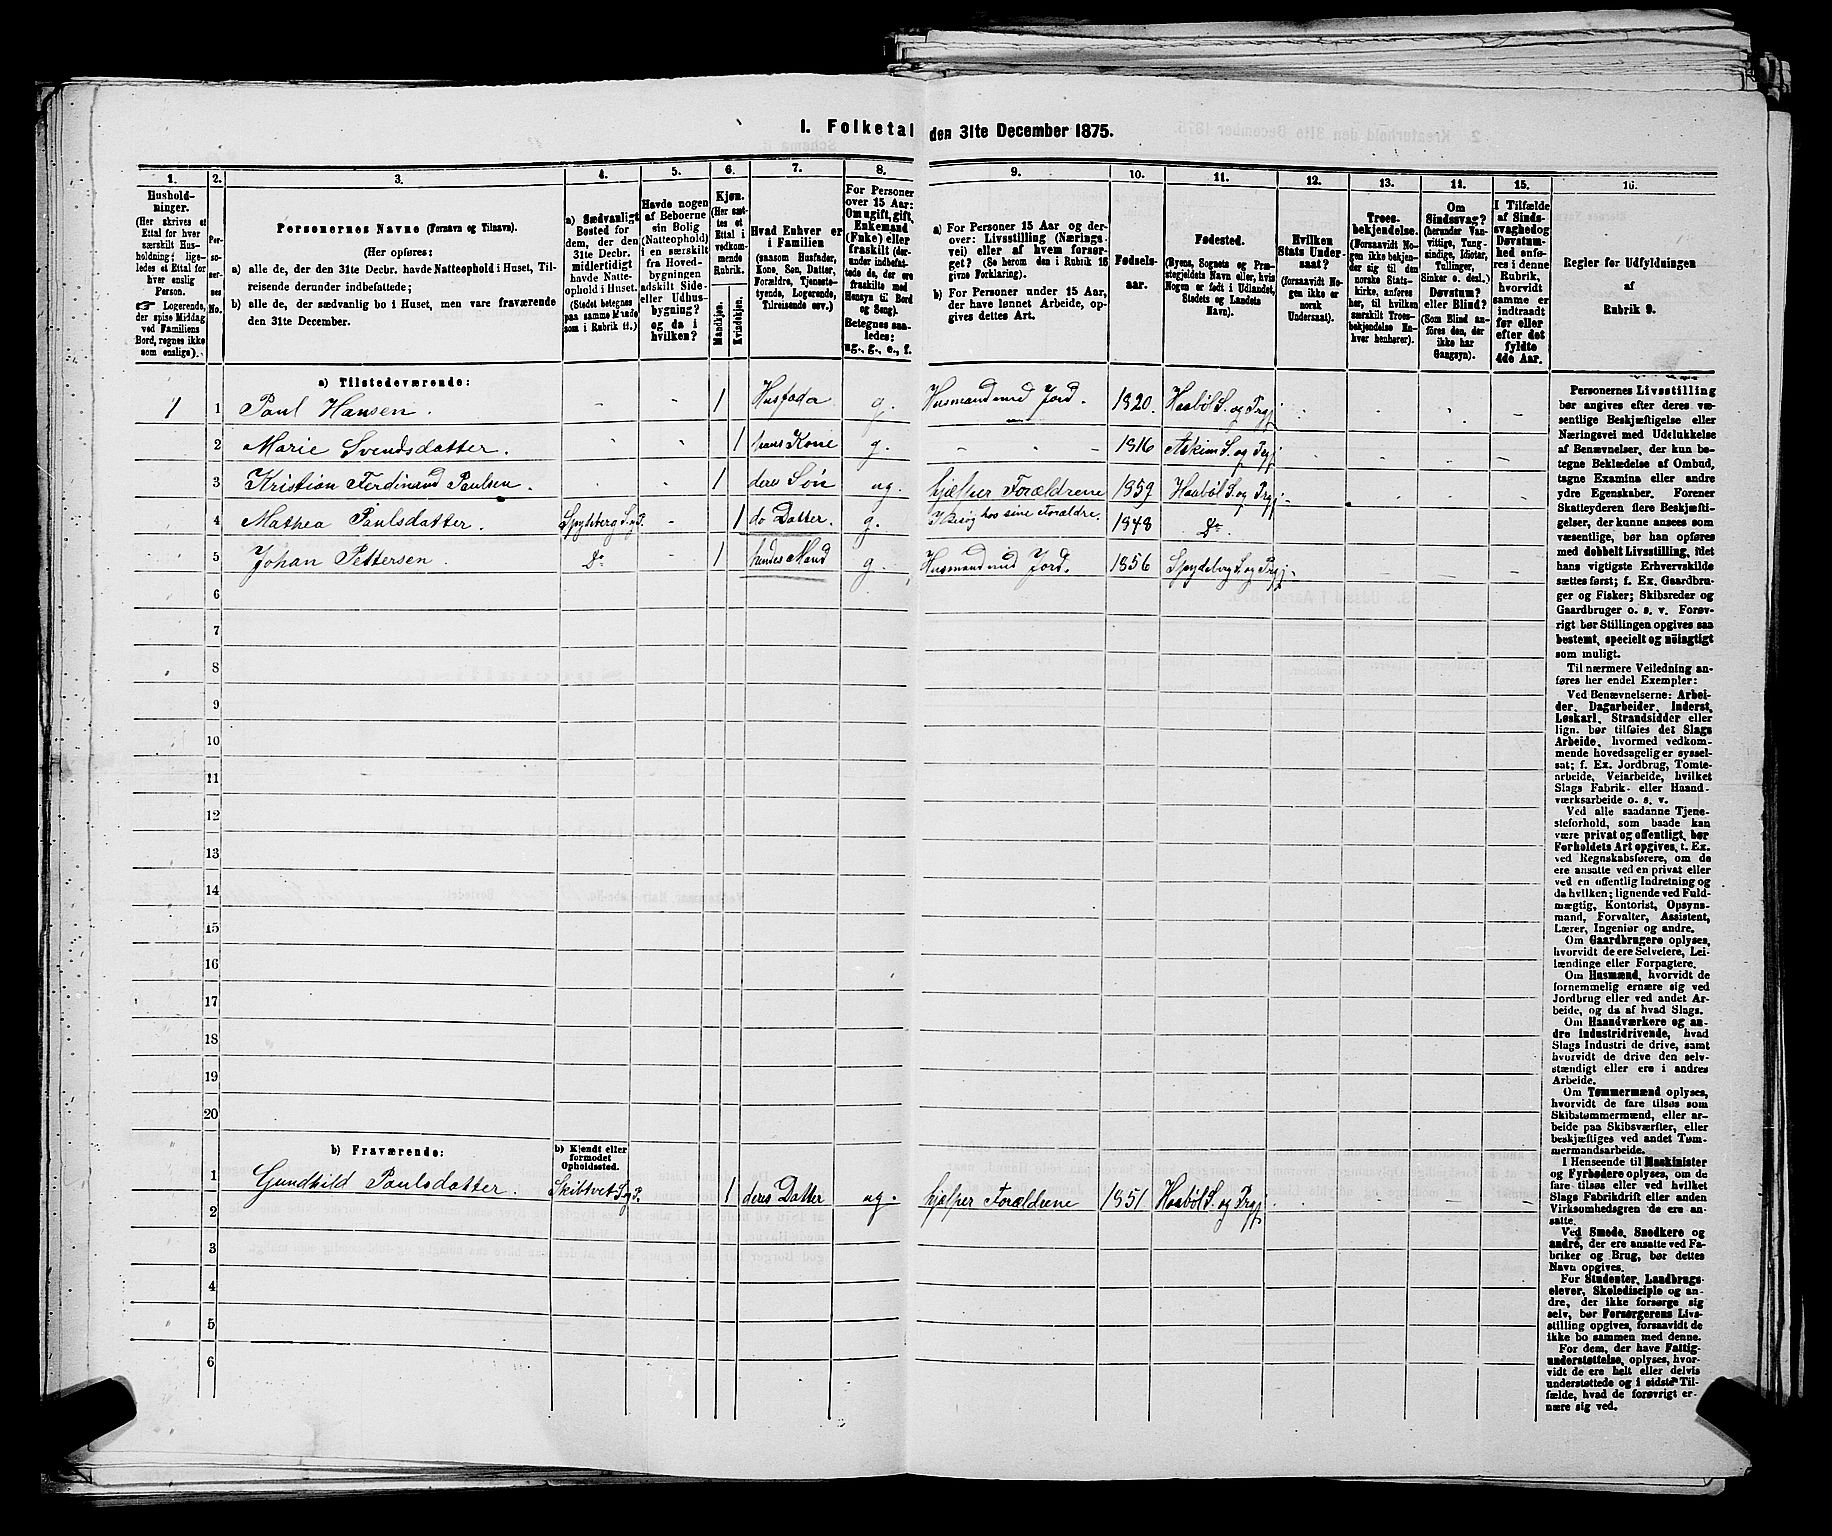 I. Folketal den 31te December 1875.
1. 2. 3. 4. 5. 6. 7. 8. 9. 10. 11. 12. 13. 14. 15. 16.
Hushold-
ninger.
(Her skrives et
Ettal for hver
særskilt Hus-
holdning; lige-
ledes et Ettal for
hver enslig
Person.
☞ Logerende,
der spise Middag
ved Familiens
Bord, regnes ikke
som enslige).
Per-
soner-
nes
No.
Personernes Navne (Fornavn og Tilnavn).
(Her opføres:
a) alle de, der den 31te Decbr. havde Natteophold i Huset, Til-
reisende derunder indbefattede;
b) alle de, der sædvanlig bo i Huset, men vare fraværende
den 31te December.
a) Sædvanligt
Bosted for
dem, der den
31te Decbr.
midlertidigt
havde Natte-
ophold i Huset.
(Stedet betegnes
paa samme Maade
som i Rubrik 11.)
Havde nogen
af Beboerne
sin Bolig
(Natteophold)
i en særskilt
fra Hoved-
bygningen
adskilt Side-
eller Udhus-
bygning?
og da i
hvilken?
Kjøn.
(Her sæt-
tes et
Ettal i
vedkom-
mende
Rubrik.
Mandkjøn.
Kvindekjøn.
Hvad Enhver er
i Familien
(saasom Husfader,
Kone, Søn, Datter,
Forældre, Tjeneste-
tyende, Logerende,
Tilreisende osv.)
For Personer
over 15 Aar:
Om ugift, gift,
Enkemand
(Enke) eller
fraskilt (der-
under indbefat-
tede de, der ere
fraskilte med
Hensyn til Bord
og Seng).
Betegnes saa-
ledes:
ug., g., e., f.
a) For Personer 15 Aar og der-
over: Livsstilling (Nærings-
vei) eller af hvem forsør-
get? (Se herom den i Rubrik 16
givne Forklaring).
b) For Personer under 15 Aar,
der have lønnet Arbeide, op-
gives dettes Art.
Fødsels-
aar.
Fødested.
(Byens, Sognets og Præ-
stegjeldets Navn eller, hvis
Nogen er født i Udlandet,
Stedets og Landets
Navn).
Hvilken
Stats Under-
saat?
(forsaavidt No-
gen ikke er
norsk
Undersaat).
Troes-
bekjendelse.
(Forsaavidt No-
gen ikke bekjen-
der sig til den
norske Stats-
kirke, anføres
her, til hvilken
særskilt Troes-
bekjendelse En-
hver henhører).
Om
Sindssvag?
(herunder Van-
vittige, Tung-
sindige, Idioter,
Tullinger,
Sinker o. desl.)
Døvstum?
eller Blind?
(Som Blind an-
føres den, der
ikke har
Gangsyn).
I Tilfælde
af Sinds-
svaghed og
Døvstum-
hed anfø-
res i denne
Rubrik,
hvorvidt
samme er
indtraadt
før eller
efter det
fyldte
4de Aar.
Regler for Udfyldningen
af
Rubrik 9.
a) Tilstedeværende:
1 1 Paul Hansen. - - 1 Husfader g. Husmand med Jord. 1820. Haabøl S. og Prgj
2 Marie Svendsdatter. 1 hans Kone g. - - 1816 Askim S. og Prgj
3 Kristian Ferdinand Paulsen. 1 deres Søn ug. hjælper Forældrene 1859 Haabøl S. og Prgj.
4 Mathea Paulsdatter. Spydeberg S. og P. - 1 do Datter. g. I Besøg hos sine Forældre. 1848 Do.
5 Johan Pettersen. Do - 1 hendes Mand g. Husmand med Jord. 1856 Spydeberg S. og Prgj.
6
7
8
9
10
11
12
13
14
15
16
17
18
19
20
b) Fraværende:
b) Kjendt eller
formodet
Opholdssted.
1 Gundhild Paulsdatter. Skibtvet S. og P. 1 deres Datter ug. hjælper Forældrene 1851 Haabøl S. og Prgj
2
3
4
5
6
Personernes Livsstilling
bør angives efter deres væ-
sentlige Beskjæftigelse eller
Næringsvei med Udelukkelse
af Benævnelser, der kun be-
tegne Beklædelse af Ombud,
tagne Examina eller andre
ydre Egenskaber. Forener
Skatteyderen flere Beskjæfti-
gelser, der kunne ansees som
væsentlige, bør han opføres
med dobbelt Livsstilling, idet
hans vigtigste Erhvervskilde
sættes først; f. Ex. Gaardbru-
ger og Fisker; Skibsreder og
Gaardbruger o. s. v. Forøv-
rigt bør Stillingen opgives saa
bestemt, specielt og nøiagtigt
som muligt.
Til nærmere Veiledning an-
føres her endel Exempler:
Ved Benævnelserne: Arbei-
der, Dagarbeider, Inderst,
Løskarl, Strandsidder eller
lign. bør tilføies det Slags
Arbeide, hvormed vedkom-
mende hovedsagelig er syssel-
sat; f. Ex. Jordbrug, Tomte-
arbeide, Veiarbeide, hvilket
Slags Fabrik- eller Haand-
værksarbeide o. s. v.
Ved alle saadanne Tjene-
steforhold, som baade kan
være privat og offentligt, bør
Forholdets Art opgives, t. Ex.
ved Regnskabsførere, om de
ere ansatte ved en privat eller
ved en offentlig Indretning og
da hvilken; lignende ved Fuld-
mægtig, Kontorist, Opsyns-
mand, Forvalter, Assistent,
Lærer, Ingeniør og andre.
Om Gaardbrugere oplyses,
hvorvidt de ere Selveiere, Lei-
lændinge eller Forpagtere.
Om Husmænd, hvorvidt de
fornemmelig ernære sig ved
Jordbrug eller ved andet Ar-
beide, og da af hvad Slags.
Om Haandværkere og an-
dre industridrivende, hvad
Slags Industri de drive, samt
hvorvidt de drive den selv-
stændigt eller ere i andres
Arbeide.
Om Tømmermænd oplyses,
hvorvidt de fare tilsøs som
Skibstømmermænd, eller ar-
beide paa Skibsværfter, eller
beskjæftiges ved andet Tøm-
mermandsarbeide.
I Henseende til Maskinister
og Fyrbødere oplyses, om de
fare tilsøs eller ved hvilket
Slags Fabrikdrift eller anden
Virksomhedsgren de ere an-
satte.
Ved Smede, Snedkere og
andre, der ere ansatte ved Fa-
briker og Brug, bør dettes
Navn opgives.
For Studenter, Landbrugs-
elever, Skoledisciple og an-
dre, der ikke forsørge sig
selv, bør Forsørgerens Livs-
stilling opgives, forsaavidt de
ikke bo sammen med denne.
For dem, der have Fattig-
understøttelse, oplyses, hvor-
vidt de ere helt eller delvis
understøttede og i sidste Til-
fælde, hvad de forøvrigt er-
nære sig ved.